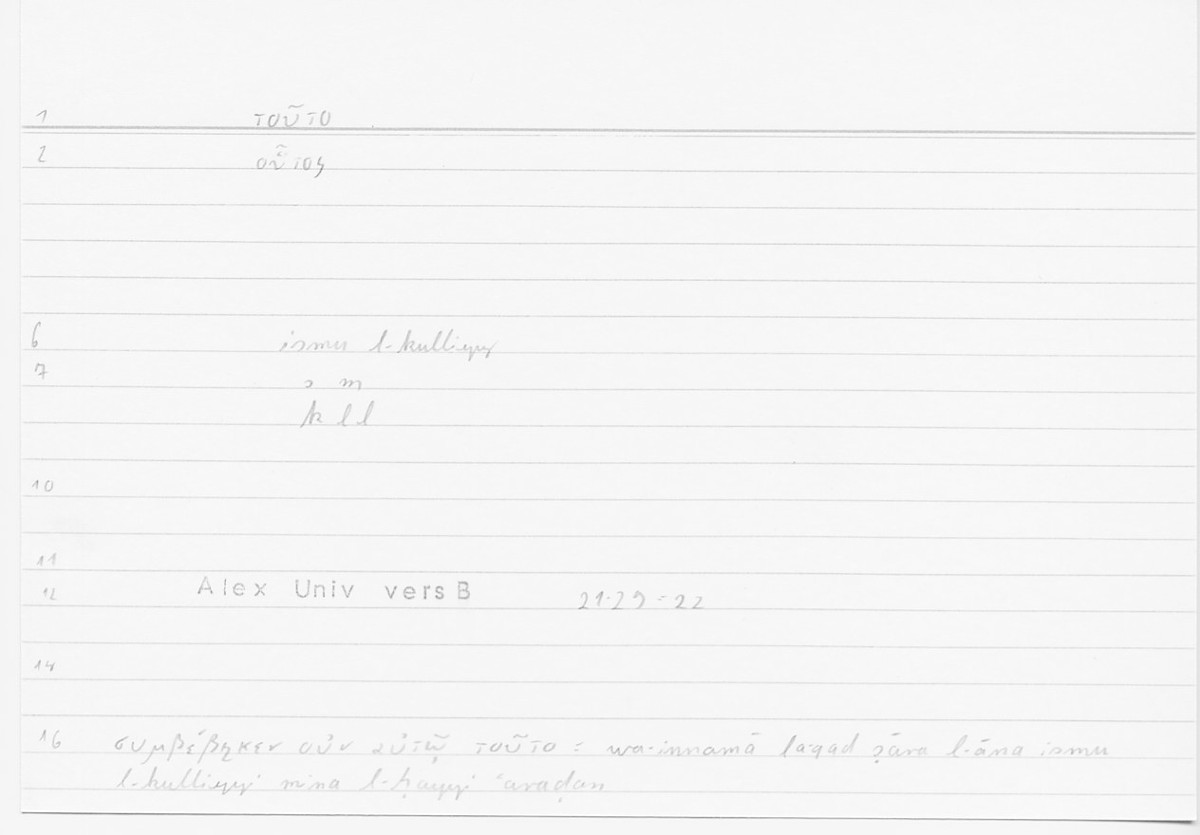 1 τοῦτο
2 οὗτος
6 ismu l-kulliyyi
7 s m
k l l
10
11
12 Alex Univ vers B 21.29 = 22
14
16 συμβέβηκεν οὖν αὐτῷ τοῦτο = wa-innamā laqad ṣāra l-āna ismu
l-kulliyyi mina l-ḥayyi ʿaraḍan